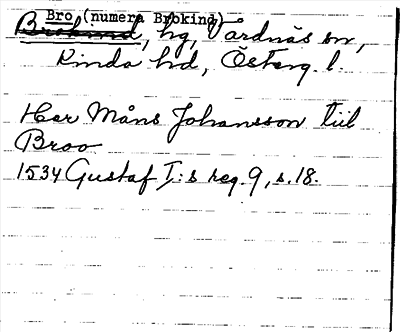 Bro (numera Broking)
Broknud, hg, Vårdnäs sn,
Kinda hd, Österg. l.
Her Måns Johansson till
Broo
1534 Gustaf I:s reg. 9, s. 18.